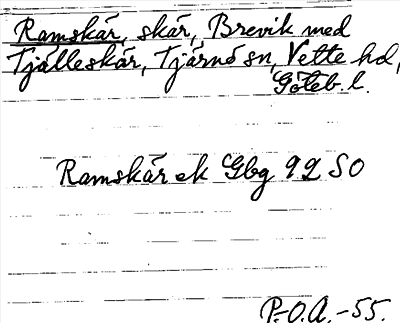 Ramskär, skär, Brevik med
Tjälleskär, Tjärnö sn, Vette hd,
Göteb. l.
Ramskär ek Gbg 92 SO
P.-O.A.-55.